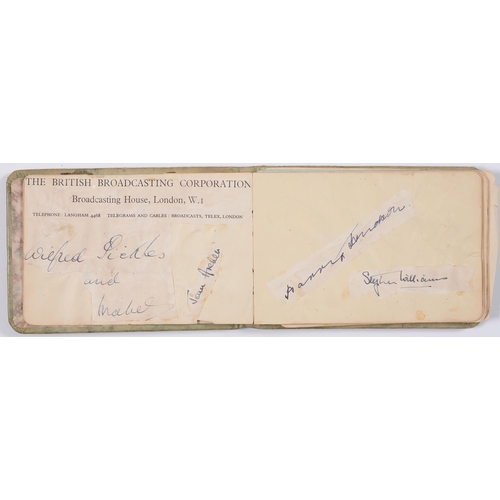 THE BRITISH BROADCASTING CORPORATION
Broadcasting House, London, W.1
TELEPHONE: LANGHAM 4468 TELEGRAMS AND CABLES: BROADCASTS, TELEX, LONDON
Wilfred Pickles
and
Mabel
Stephen Williams